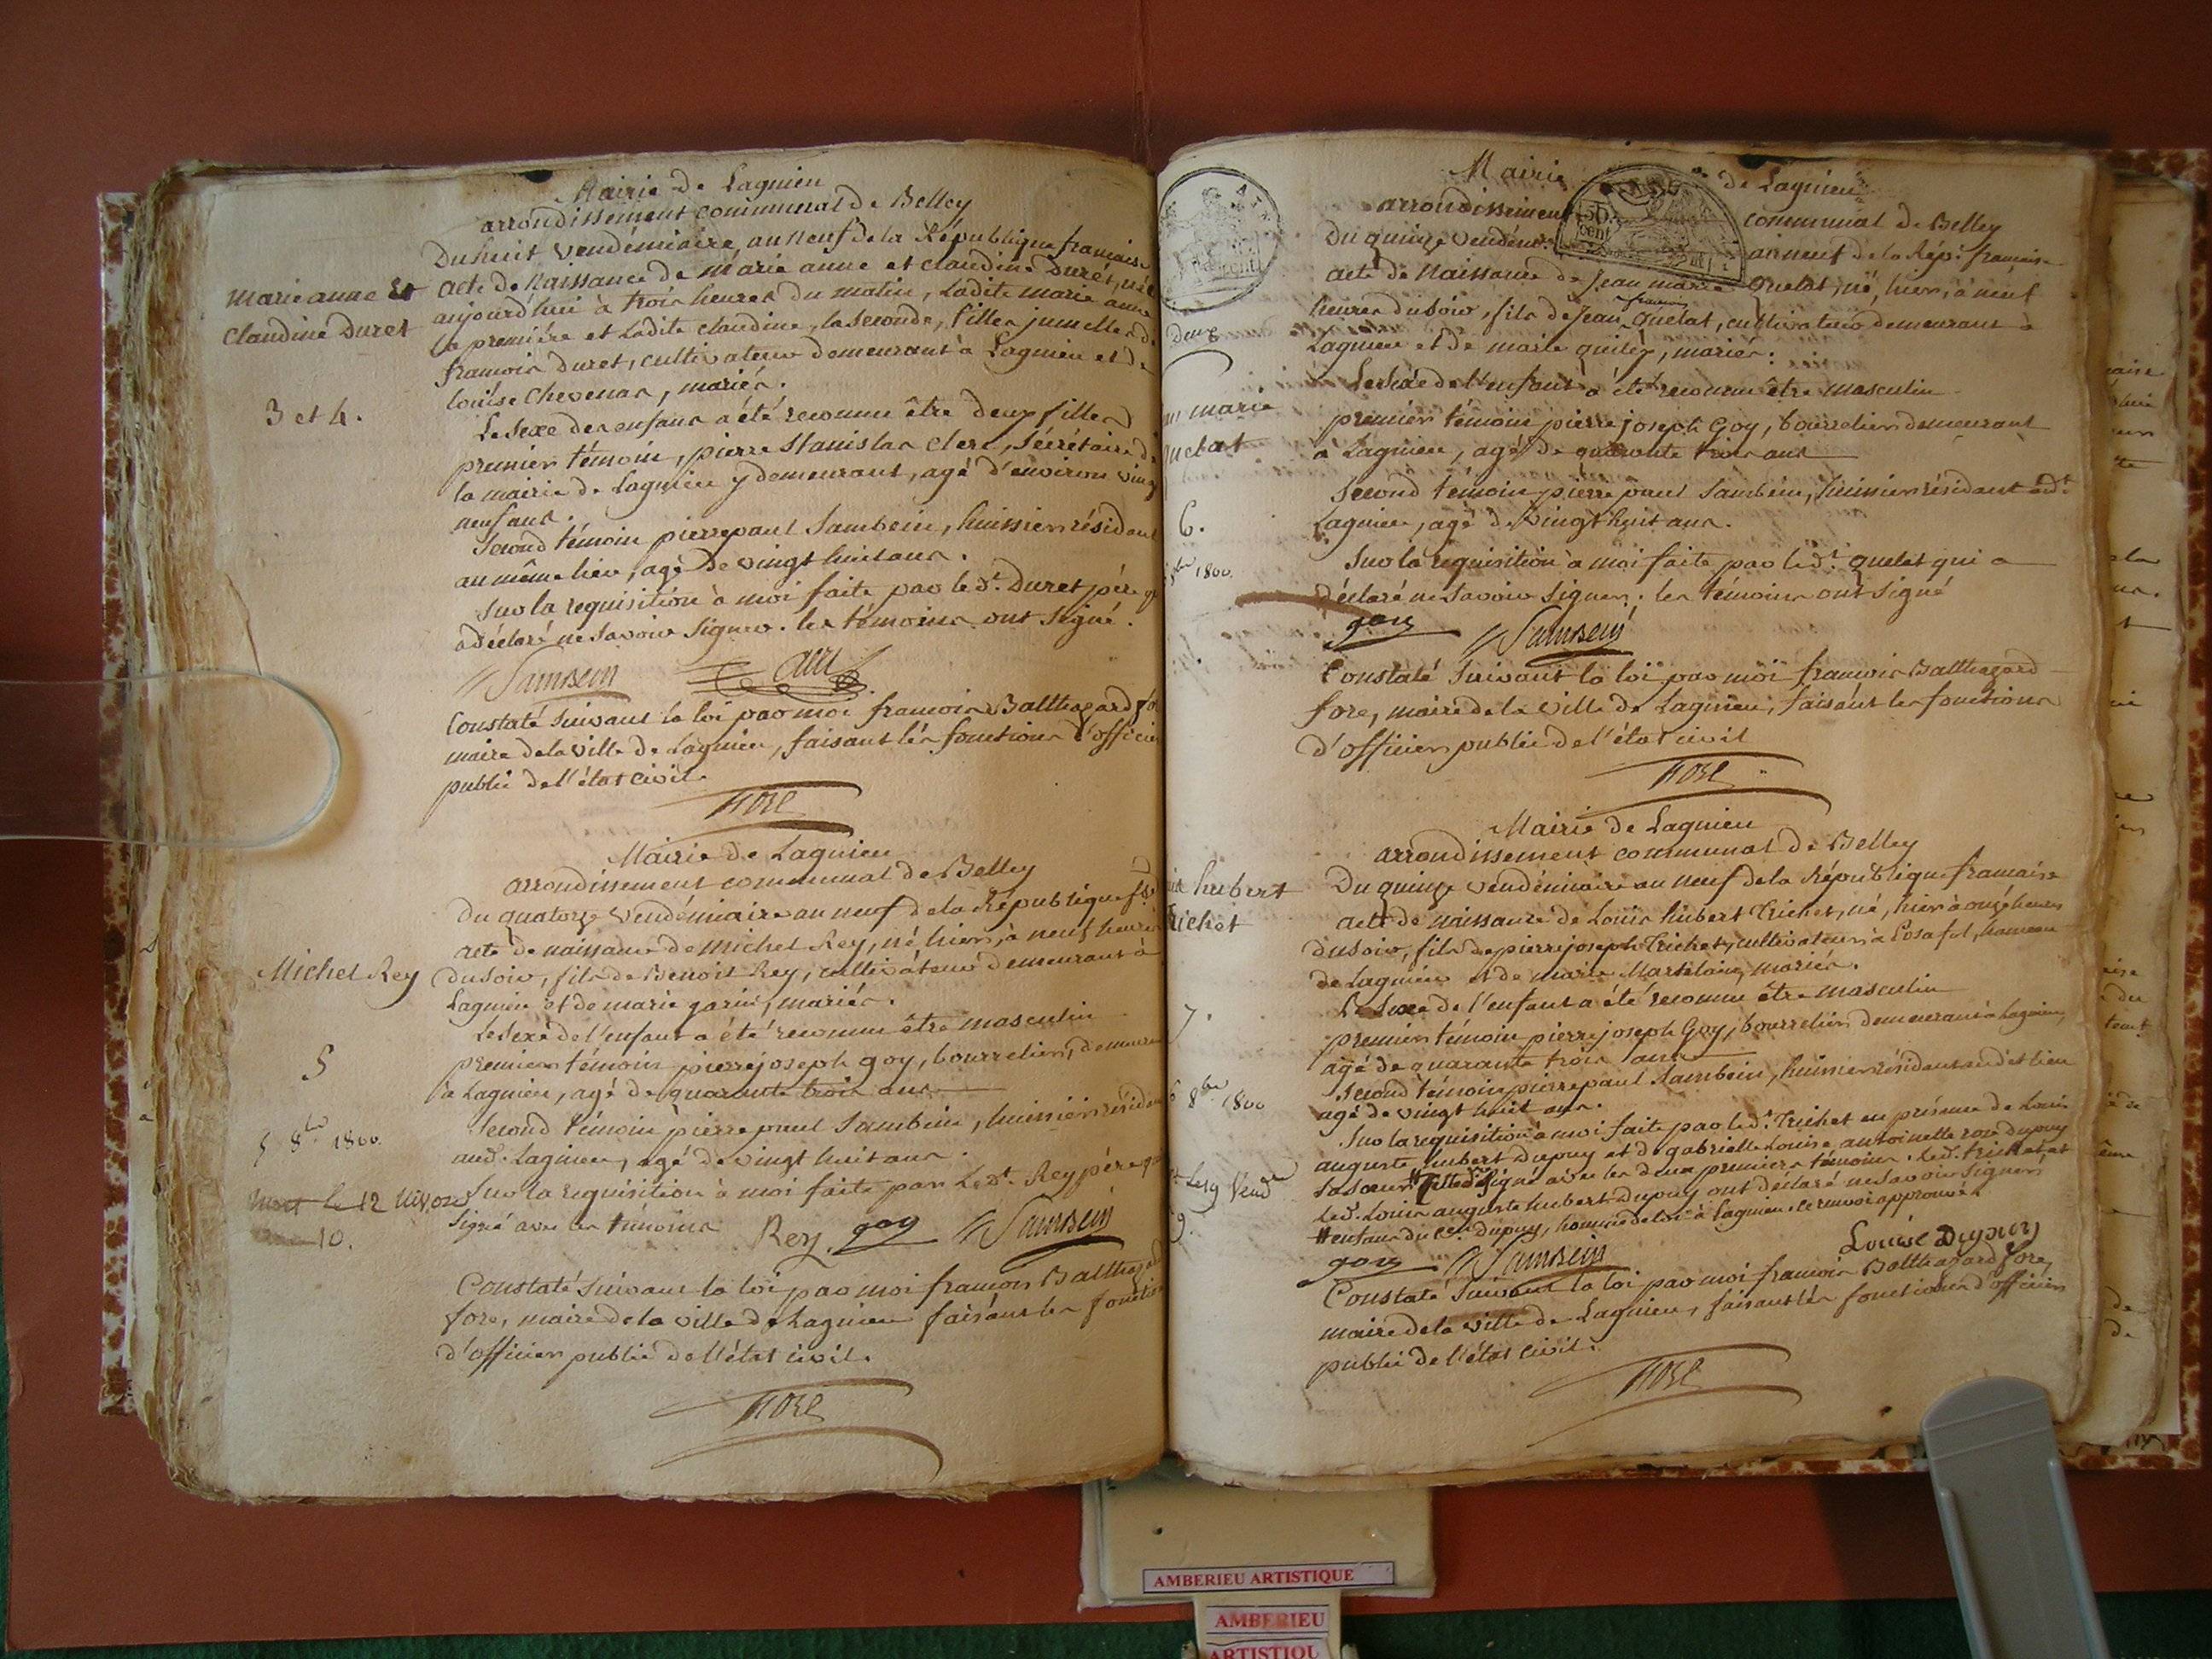 Mairie de Lagnieu
arrondissement communal de Belley
Du huit vendémiaire, an neuf de la République francaise
acte de Naissance de marie anne et claudine Duret, née
aujourd'hui à trois heures du matin, Ladite marie anne
la première et Ladite claudine, la seconde, filles jumelles de
francois Duret, cultivateur demeurant à Lagnieu et de
louise Chevenas, mariés.
Le sexe des enfans a été reconnu être deux filles
premier témoin, pierre Stanislas clerc, sécrétaire de
la mairie de Lagnieu y demeurant, agé d'environ vingt
neuf ans.
Second témoin pierre paul Sambein, huissier résidant
au même lieu, agé de vingt huit ans.
Sur la requisition à moi faite par le dt. Duret père qui
a déclaré ne savoir signer. les témoins ont signé.
Sambein
Constaté suivant la loi par moi francois Balthazard fore
maire de la ville de Lagnieu, faisant les fonctions d'officier
public de l'état civil.
fore
marie anne et
claudine Duret
3 et 4.
Mairie de Lagnieu
arrondissement communal de Belley
Du quatorze vendémiaire an neuf de la République
acte de naissance de Michel Rey, né hier, à neuf heures
du soir, fils de Benoit Rey, cultivateur demeurant à
Lagnieu et de marie garin, mariés.
Le sexe de l'enfant a été reconnu être masculin
premier témoin pierre joseph goy, bourrelier, demeurant
à Lagnieu, agé de quarante trois ans
Second témoin pierre paul Sambein, huissier résidant
aud. Lagnieu, agé de vingt huit ans.
Sur la requisition à moi faite par le dt. Rey père qui
signé avec les témoins Rey goy Sambein
Constaté suivant la loi par moi francois Balthazard
fore, maire de la ville de Lagnieu faisant les fonctions
d'officier public de l'état civil.
fore
Michel Rey
5
5 8bre 1800.
mort le 12 nivose
10.
Mairie de Lagnieu
arrondissement communal de Belley
Du quinze vendém. an neuf de la Rép. francaise
acte de Naissance de Jean marie Quelat, né, hier, à neuf
francois
heures du soir, fils de Jean Quelat, cultivateur demeurant à
Lagnieu et de marie, mariés.
Le sexe de l'enfant a été reconnu être masculin
premier témoin pierre joseph Goy, bourrelier demeurant
à Lagnieu, agé de quarante trois ans
Second témoin pierre paul Sambein, huissier résidant aud.t
Lagnieu, agé de vingt huit ans.
Sur la requisition à moi faite par le dt. Quelat qui a
déclaré ne savoir signer. les témoins ont signé
goy Sambein
Constaté suivant la loi par moi francois Balthazard
fore, maire de la ville de Lagnieu, faisant les fonctions
d'officier public de l'état civil
fore
Deux
marie
quelat
6.
1800.
Mairie de Lagnieu
arrondissement communal de Belley
Du quinze vendémiaire an neuf de la République francaise
acte de naissance de Louis hubert Trichet, né, hier à onze heures
du soir, fils de pierre joseph Trichet, cultivateur à Posafol, hameau
de Lagnieu et de marie Martelain, mariés.
Le sexe de l'enfant a été reconnu être masculin
premier témoin pierre joseph Goy, bourrelier demeurant à Lagnieu,
agé de quarante trois ans
Second témoin pierre paul Sambein, huissier résidant aud.t lieu
agé de vingt huit ans.
Sur la requisition à moi faite par led.t Trichet en présence de Louis
auguste hubert Dupuy et de gabrielle Louise antoinette rose dupuy
sa soeur signé avec les deux premiers témoins. led. trichet et
led. Louis auguste hubert Dupuy ont déclaré ne savoir signer
enfans du cen. Dupuy, homme de loi à Lagnieu. ce renvoi approuvé.
goy Sambein Louise Dupuy
Constaté suivant la loi par moi francois Balthazard fore,
maire de la ville de Lagnieu, faisant les fonctions d'officier
public de l'état civil.
fore
hubert
Trichet
7.
6 8bre 1800
le 19 Vend.re
9.
AMBERIEU ARTISTIQUE
AMBERIEU
ARTISTIQU